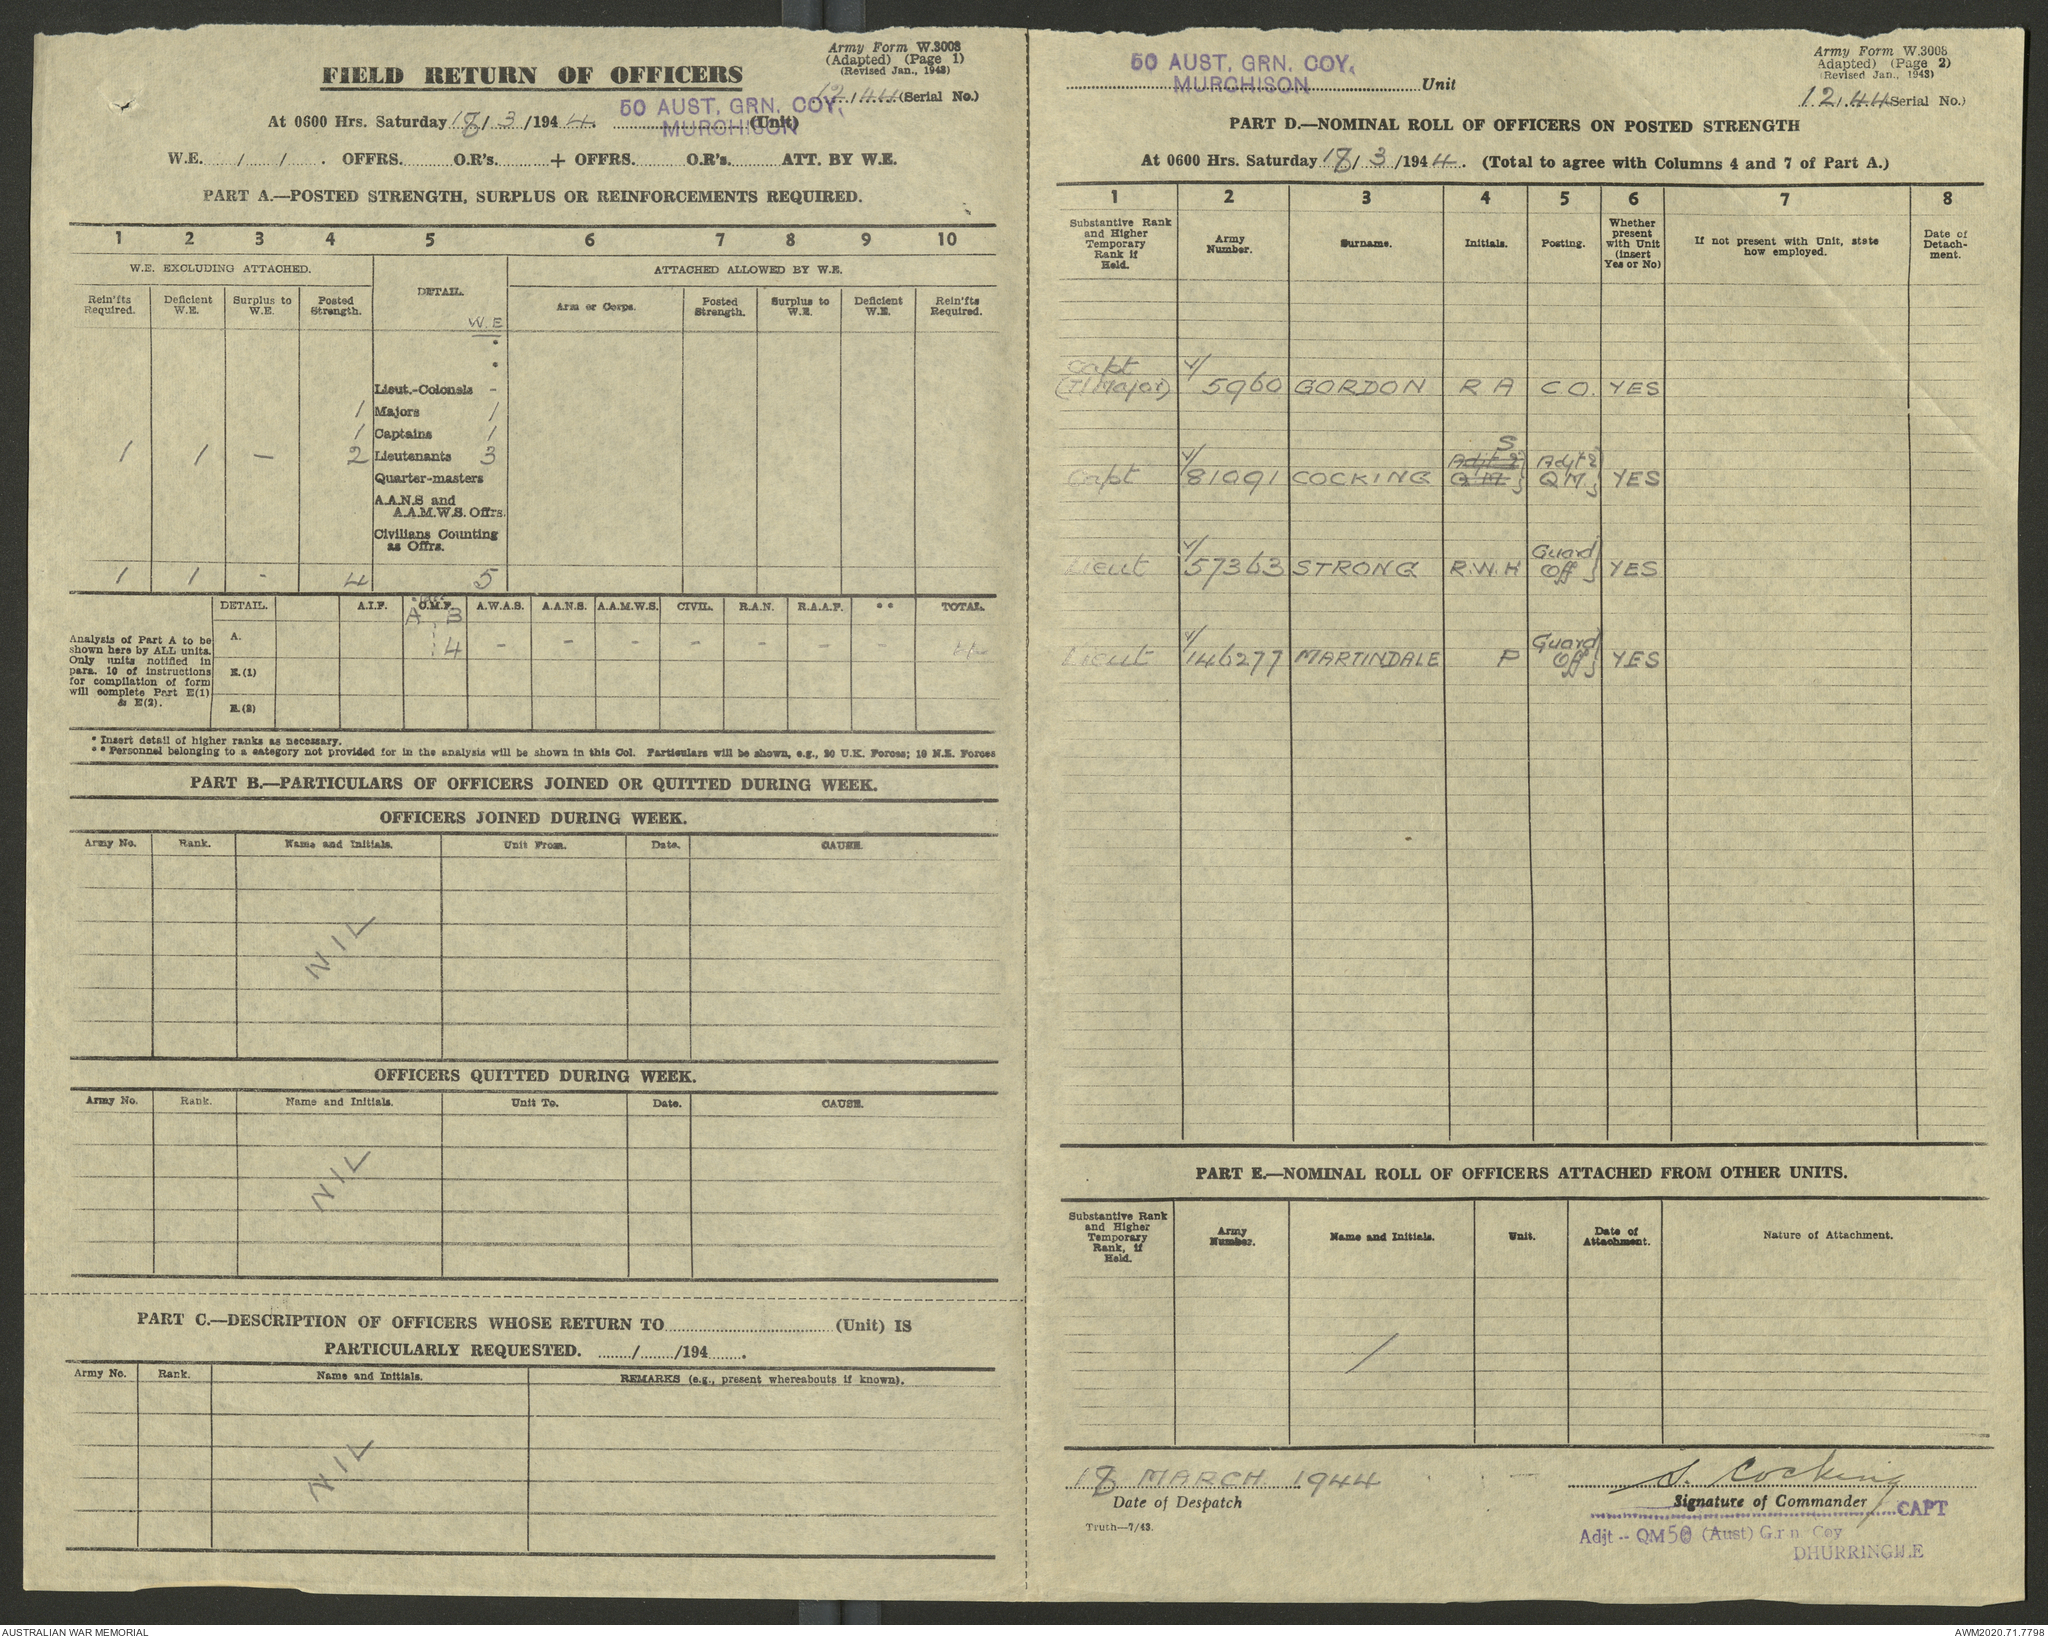 Army Form W.3008
(Adapted) (Page 1)
(Revised Jan., 1943)
FIELD RETURN OF OFFICERS
12/44 (Serial No.)
At 0600 Hrs. Saturday 18/3/1944. 50 AUST. GRN. COY. MURCHISON (Unit)
W.E. / / . OFFRS. O.R's. + OFFRS. O.R's. ATT. BY W.E.
PART A.—POSTED STRENGTH, SURPLUS OR REINFORCEMENTS REQUIRED.
1 2 3 4 5 6 7 8 9 10
W.E. EXCLUDING ATTACHED. DETAIL. ATTACHED ALLOWED BY W.E.
Rein'fts Required. Deficient W.E. Surplus to W.E. Posted Strength. W.E Arm or Corps. Posted Strength. Surplus to W.E. Deficient W.E. Rein'fts Required.
*
*
Lieut.-Colonels -
1 Majors 1
1 Captains 1
1 1 — 2 Lieutenants 3
Quarter-masters
A.A.N.S and
A.A.M.W.S. Offrs.
Civilians Counting
as Offrs.
1 1 - 4 5
DETAIL. A.I.F. C.M.F. A.W.A.S. A.A.N.S. A.A.M.W.S. CIVIL. R.A.N. R.A.A.F. ** TOTAL.
A B
Analysis of Part A to be
shown here by ALL units.
Only units notified in
para. 10 of instructions
for compilation of form
will complete Part E(1)
& E(2).
A. 4 - - - - - - - 4
E.(1)
E.(2)
* Insert detail of higher ranks as necessary.
** Personnel belonging to a category not provided for in the analysis will be shown in this Col. Particulars will be shown, e.g., 20 U.K. Forces; 10 N.E. Forces
PART B.—PARTICULARS OF OFFICERS JOINED OR QUITTED DURING WEEK.
OFFICERS JOINED DURING WEEK.
Army No. Rank. Name and Initials. Unit From. Date. CAUSE.
NIL
OFFICERS QUITTED DURING WEEK.
Army No. Rank. Name and Initials. Unit To. Date. CAUSE.
NIL
PART C.—DESCRIPTION OF OFFICERS WHOSE RETURN TO (Unit) IS
PARTICULARLY REQUESTED. / /194 .
Army No. Rank. Name and Initials. REMARKS (e.g., present whereabouts if known).
NIL
Army Form W.3008
Adapted) (Page 2)
(Revised Jan., 1943)
50 AUST. GRN. COY.
MURCHISON Unit
12/44 Serial No.)
PART D.—NOMINAL ROLL OF OFFICERS ON POSTED STRENGTH
At 0600 Hrs. Saturday 18/3/1944. (Total to agree with Columns 4 and 7 of Part A.)
1 2 3 4 5 6 7 8
Substantive Rank and Higher Temporary Rank if Held. Army Number. Surname. Initials. Posting. Whether present with Unit (insert Yes or No) If not present with Unit, state how employed. Date of Detachment.
Capt V/
(T/Major) 5960 GORDON R A C O. YES
S
V/ Adjt & Adjt &
Capt 81091 COCKING Q M QM YES
V/ Guard
Lieut 57363 STRONG R.W.H Off YES
V/ Guard
Lieut 146277 MARTINDALE P Off YES
PART E.—NOMINAL ROLL OF OFFICERS ATTACHED FROM OTHER UNITS.
Substantive Rank and Higher Temporary Rank, if Held. Army Number. Name and Initials. Unit. Date of Attachment. Nature of Attachment.
/
18 MARCH 1944 S. Cocking
Date of Despatch Signature of Commander
CAPT
Truth—7/43.
Adjt -- QM 50 (Aust) Grn Coy
DHURRINGILE
AUSTRALIAN WAR MEMORIAL AWM2020.71.7798